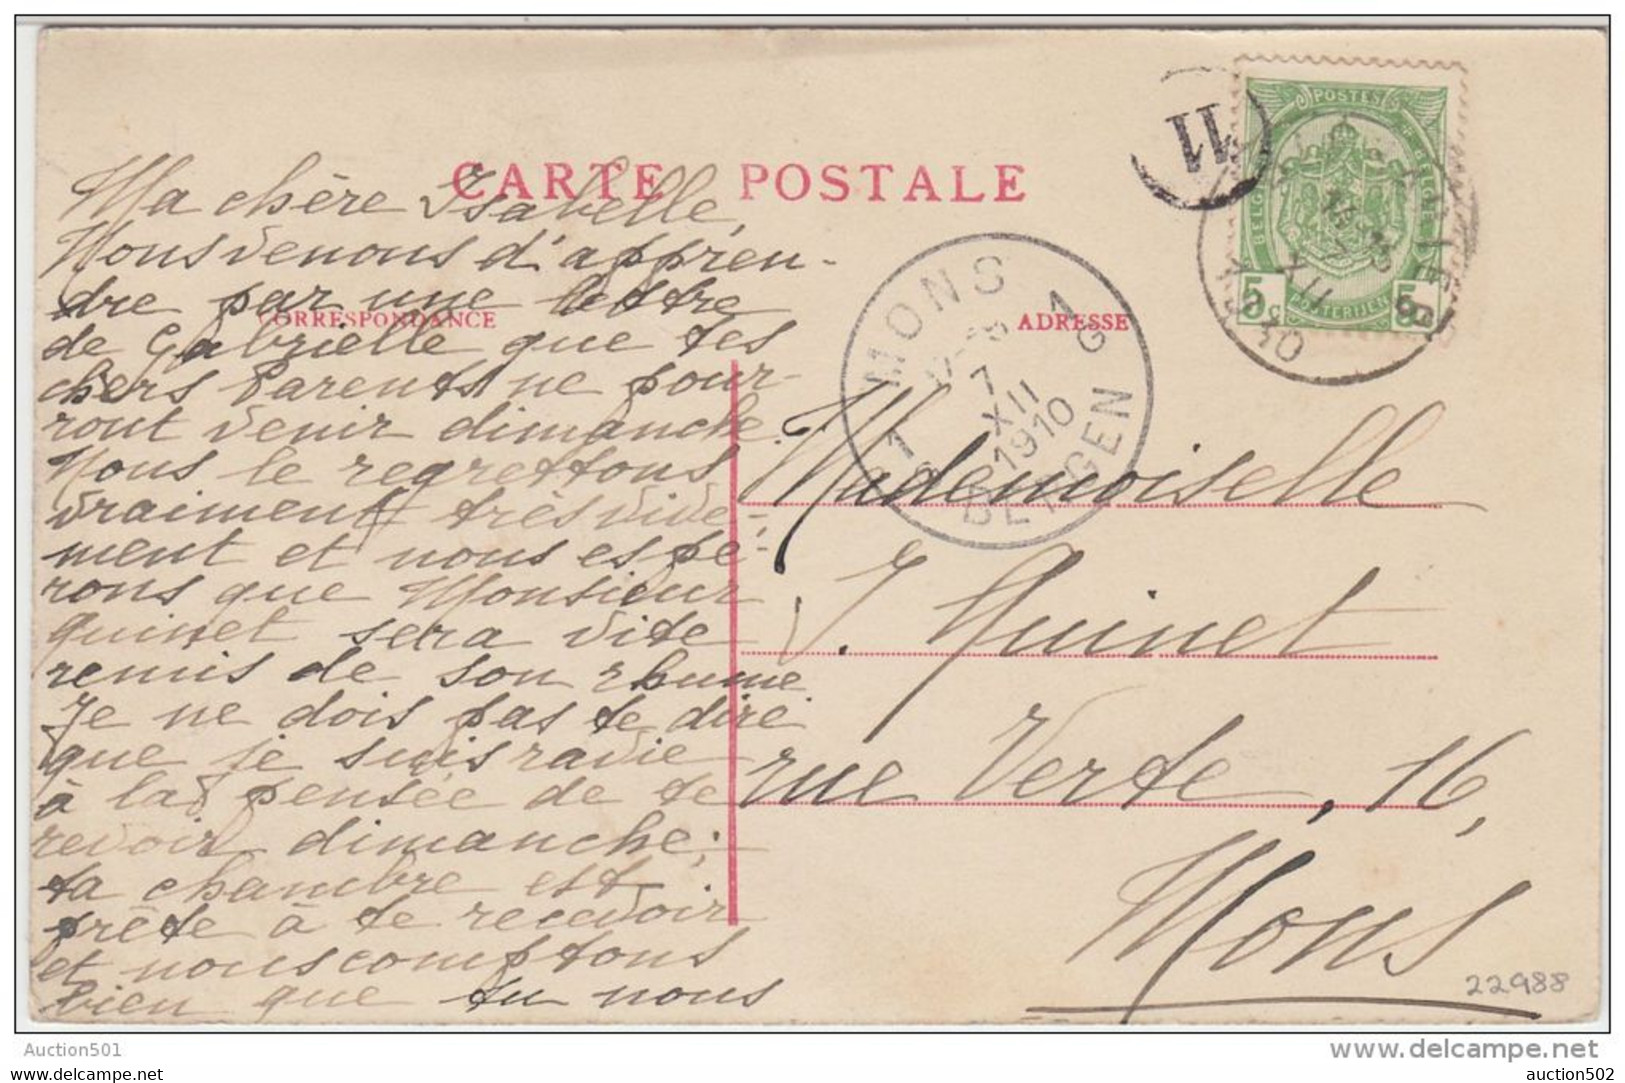 CARTE POSTALE
CORRESPONDANCE
ADRESSE
Ma chère Isabelle,
Nous venons d'appren-
dre par une lettre
de Gabrielle que tes
chers Parents ne pour-
ront venir dimanche.
Nous le regrettons
vraiment très vive-
ment et nous espé-
rons que Monsieur
Quinet sera vite
remis de son rhume.
Je ne dois pas te dire
que je suis ravie
à la pensée de te
revoir dimanche;
ta chambre est
prête à te recevoir
et nous comptons
bien que tu nous
Mademoiselle
I. Quinet
rue Verte, 16,
Mons
11
POSTES
BELGIQUE
POSTERIJEN
5c 5c
MONS 1G
7
XII
1910
BERGEN
1G
XII
22988
Auction501
www.delcampe.net
auction502